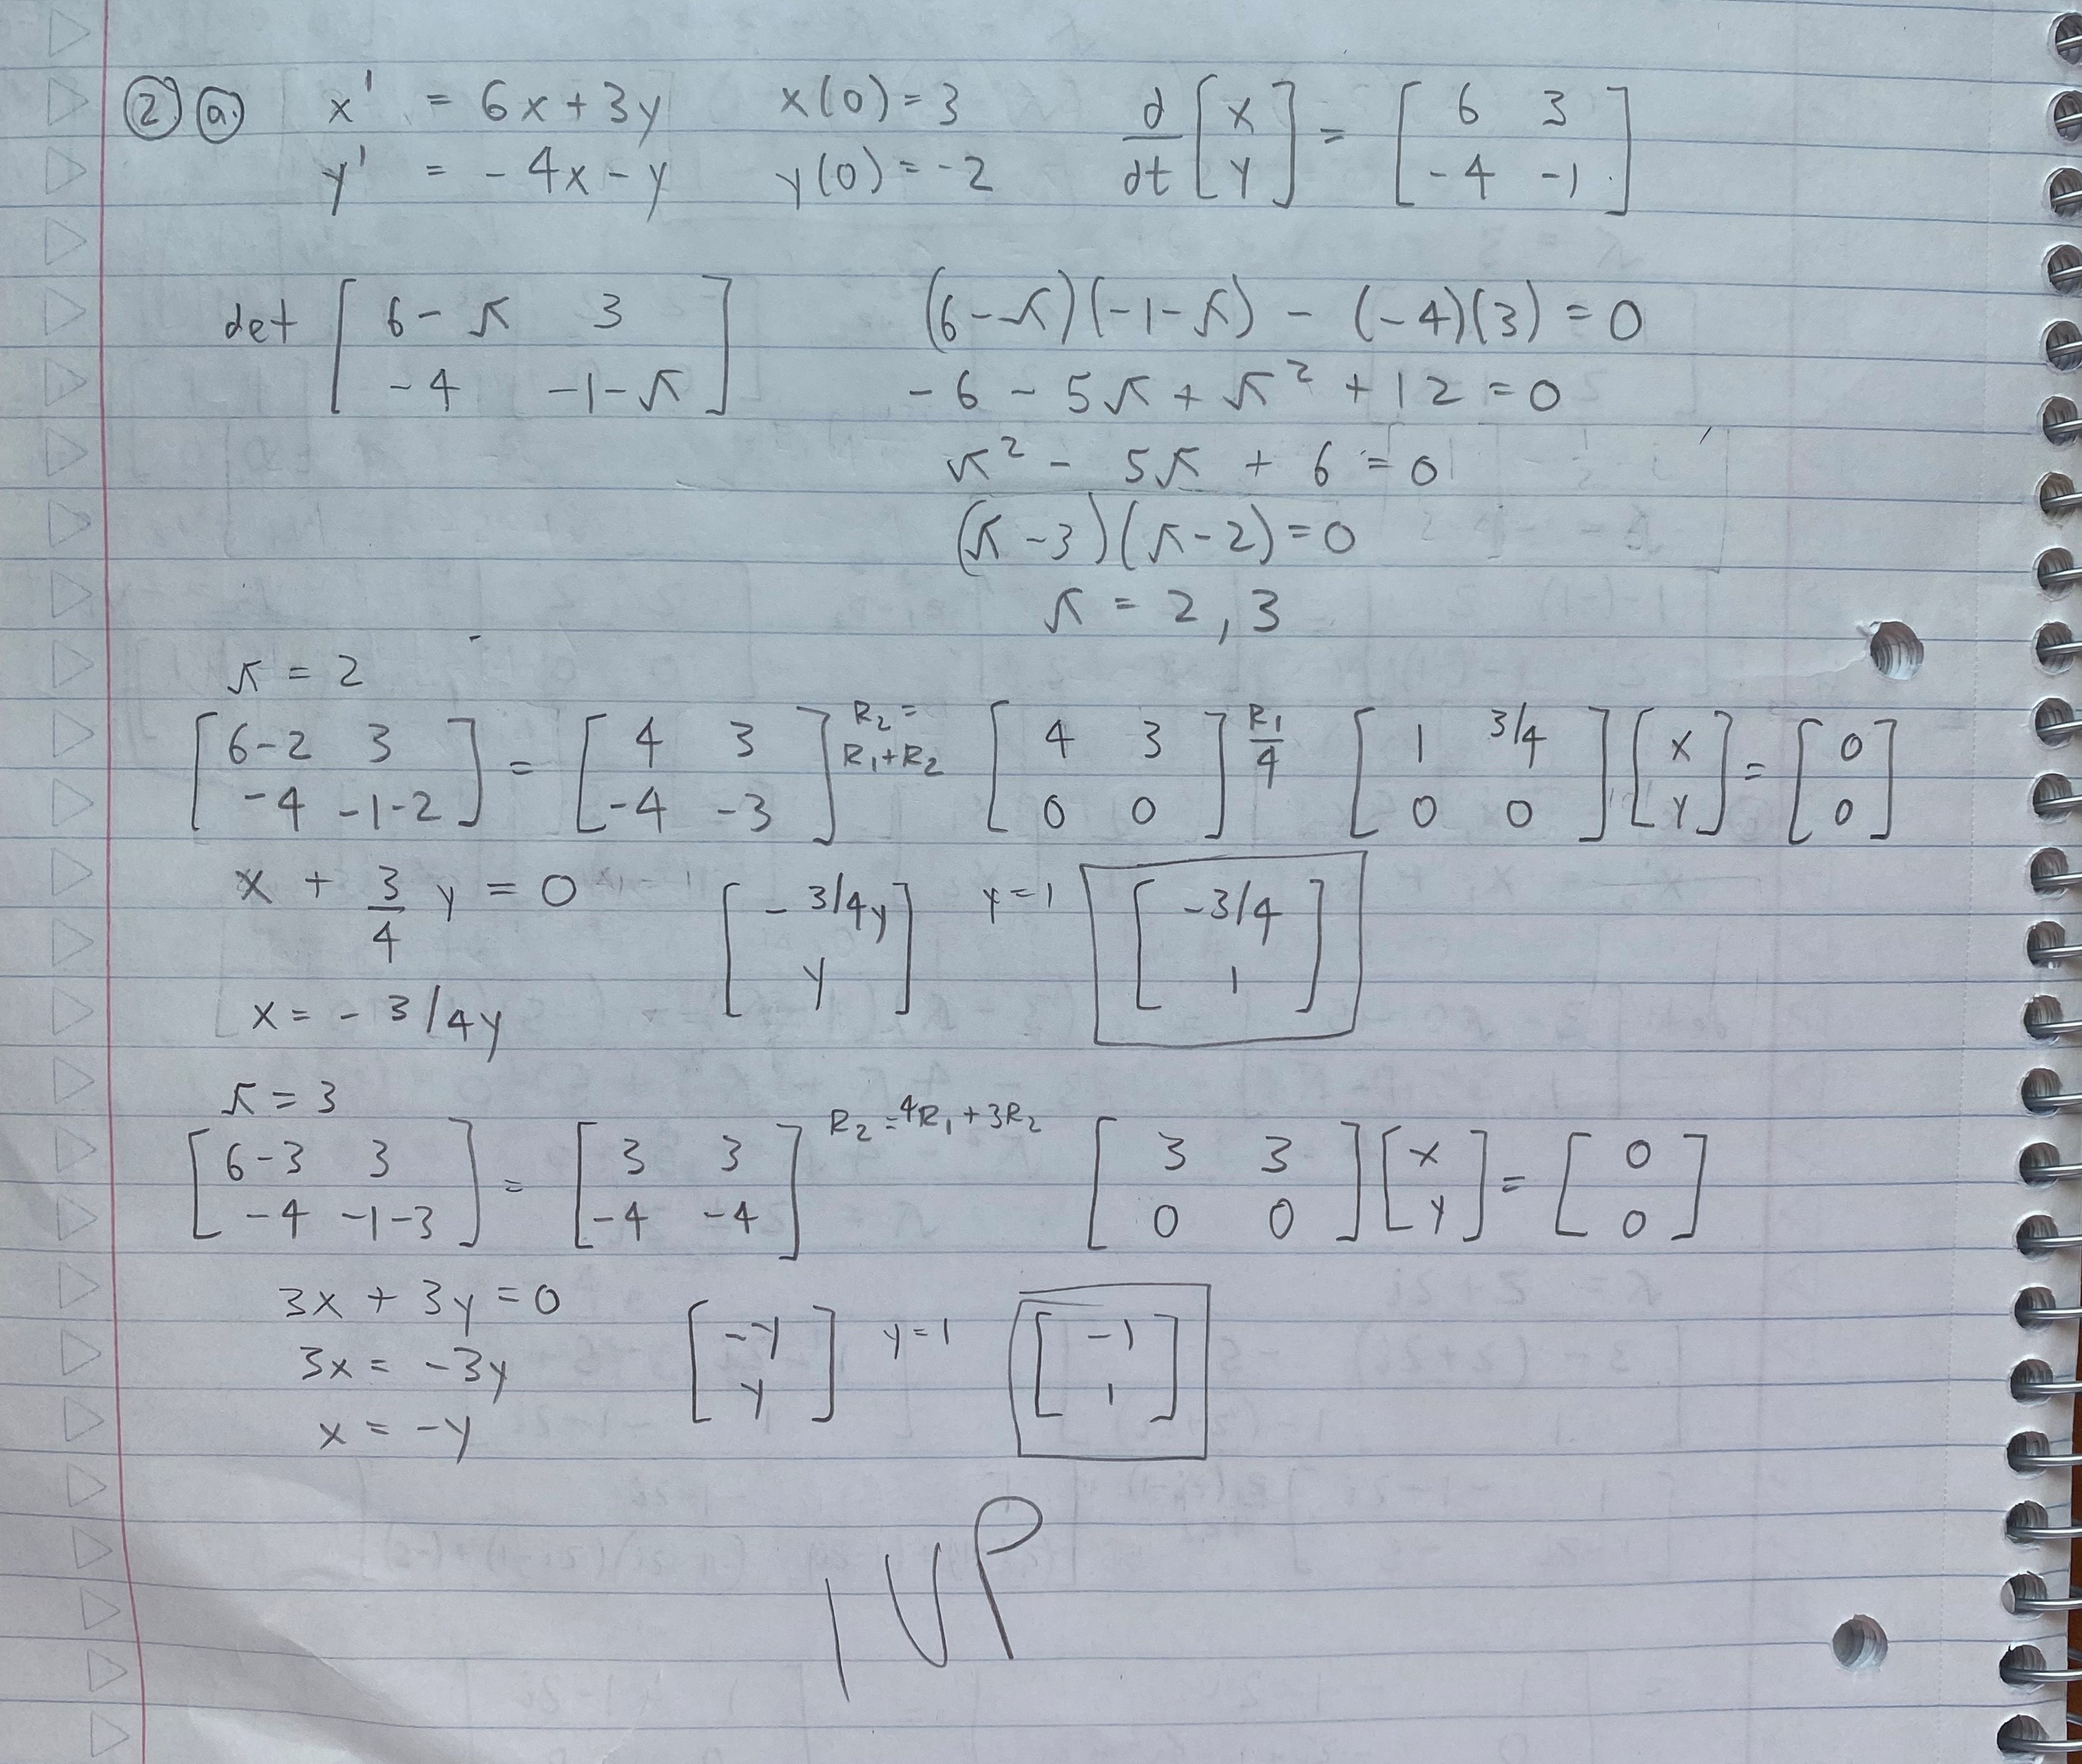 ② ⓐ. x' = 6x + 3y x(0) = 3 d/dt [x y] = [6 3
y' = -4x - y y(0) = -2 -4 -1]
det [6-λ 3 (6-λ)(-1-λ) - (-4)(3) = 0
-4 -1-λ] -6 - 5λ + λ² + 12 = 0
λ² - 5λ + 6 = 0
(λ-3)(λ-2) = 0
λ = 2, 3
λ = 2
[6-2 3; -4 -1-2] = [4 3; -4 -3] R₂ = R₁+R₂ [4 3; 0 0] R₁/4 [1 3/4; 0 0] [x; y] = [0; 0]
x + 3/4 y = 0 [-3/4y; y] y=1 [-3/4; 1]
x = -3/4y
λ = 3
[6-3 3; -4 -1-3] = [3 3; -4 -4] R₂ = 4R₁ + 3R₂ [3 3; 0 0] [x; y] = [0; 0]
3x + 3y = 0 [-y; y] y=1 [-1; 1]
3x = -3y
x = -y
IVP